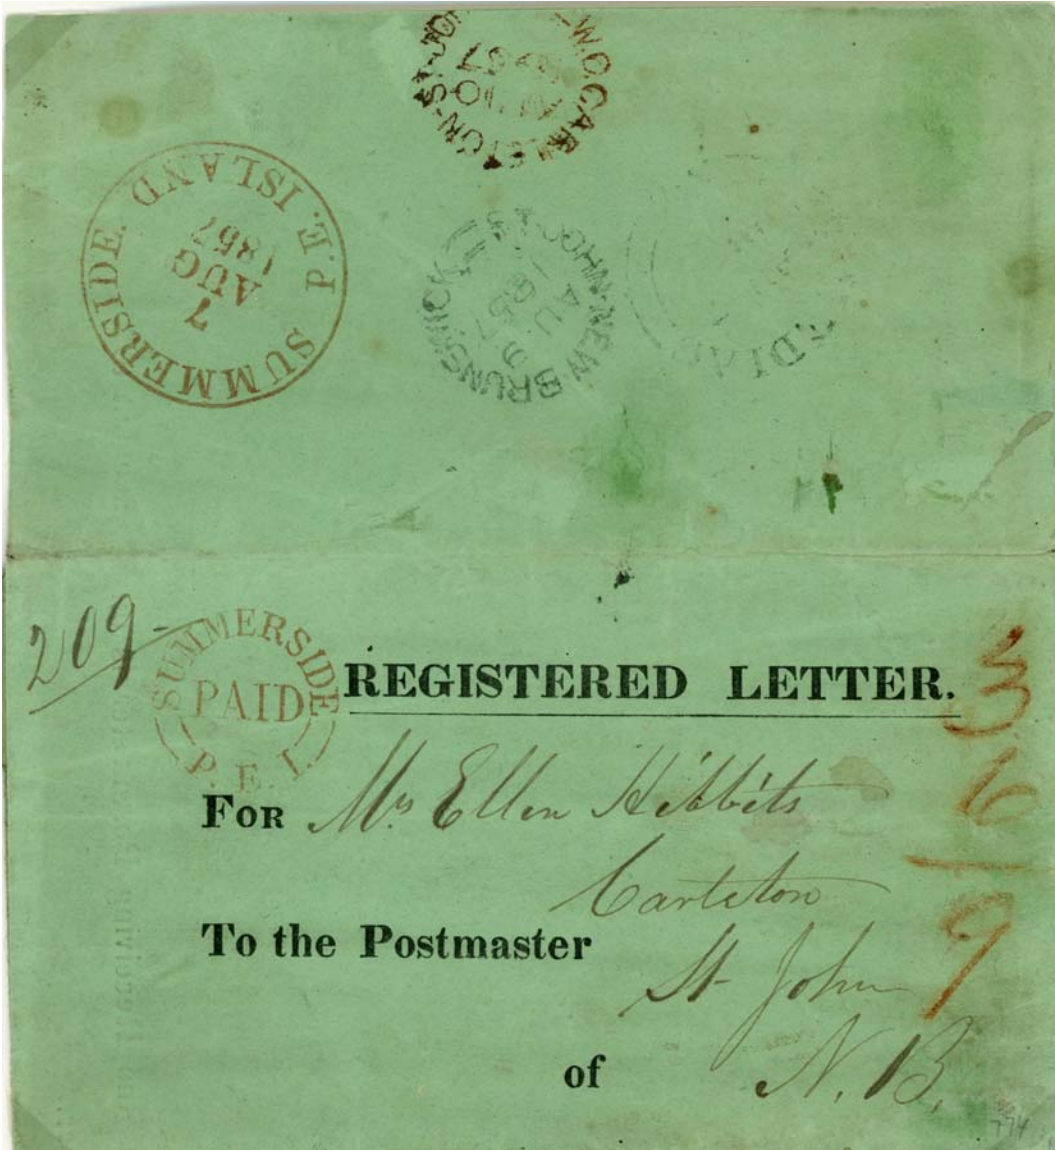 W.O. CARLETON-ST. JO
AU 10
1857
SUMMERSIDE. P.E. ISLAND
7
AUG
1857
ST. JOHN-NEW BRUNSWICK
AU 9
1857
EDIAC
209-
SUMMERSIDE
PAID
P. E. I.
REGISTERED LETTER.
3
6
9
FOR Mrs Ellen Hibbits
Carleton
To the Postmaster St John
of N.B.
774